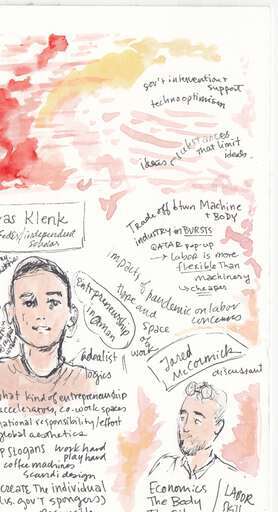 gov't intervention +
support
technooptimism
ideas + substances
that limit
ideas.
as Klenk
independent
scholar
Trade off btwn Machine
+ BODY
industry on BURSTS
QATAR pop-up
→ LABOR is more
flexible Than
machinery
cheaper
impacts of pandemic on labor
type and concerns
space
of
work
Entrepreneurship
in Oman
idealist
logics
Jared
McCormick
discussant
what kind of entrepreneurship
accelerators, co-work spaces
national responsibility/effort
global aesthetics
slogans work hard
play hard
coffee machines
scandi design
CREATE The individual
(vs. gov't sponsors)
Economics
The Body
LABOR